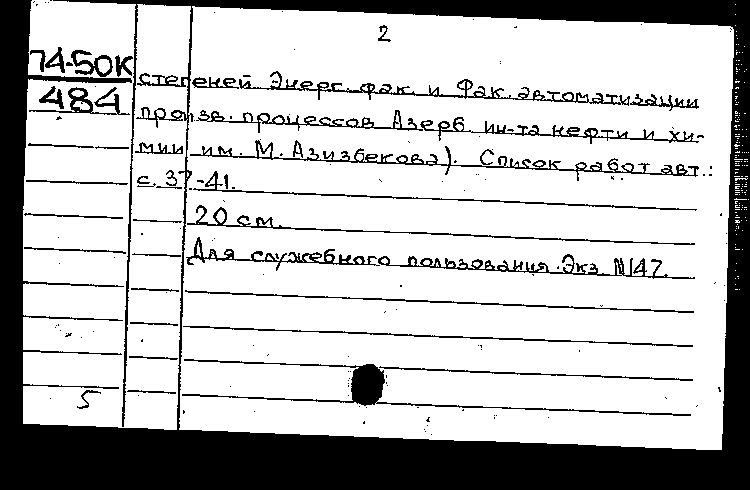 2
74-50К
484
степеней Энерг. фак. и Фак. автоматизации
произв. процессов Азерб. ин-та нефти и хи-
мии им. М. Азизбекова). Список работ авт.:
с. 37-41.
20 см.
Для служебного пользования. Экз. №47.
5